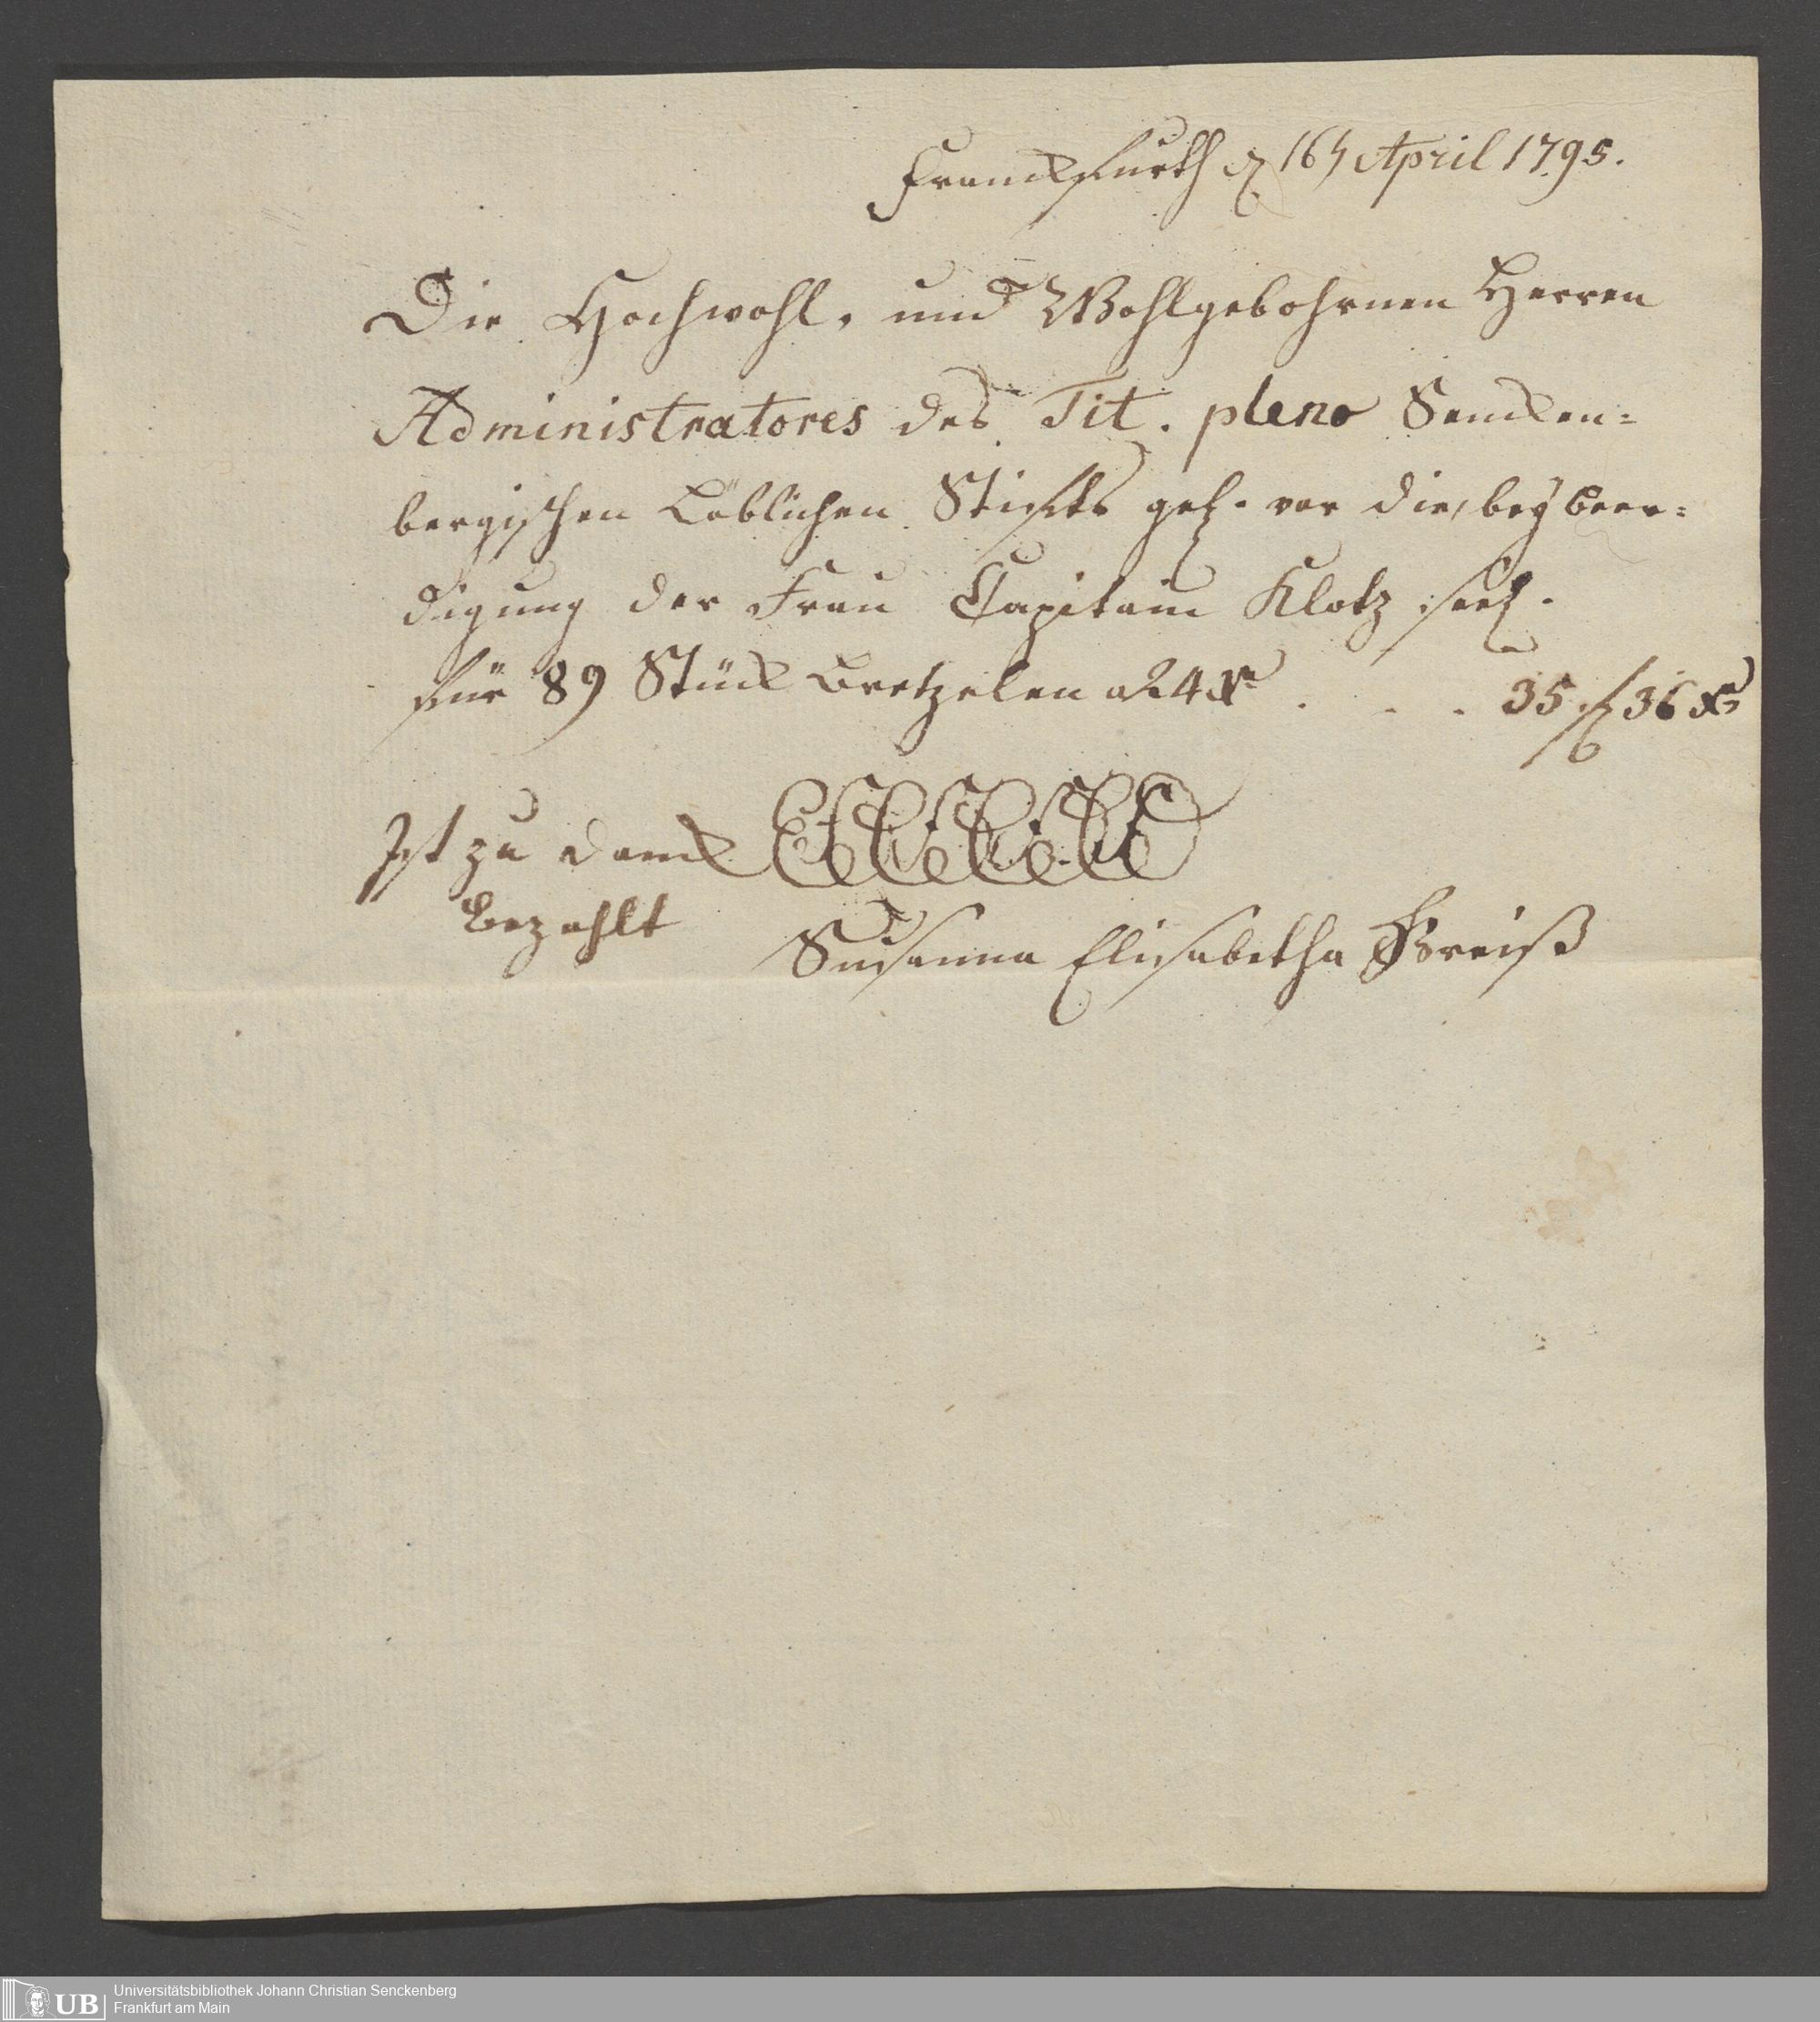 Franckfurth d 16t April 1795.
Die Hochwohl, und Wohlgebohrnen Herren
Administratores des Tit. pleno Sencken=
bergischen Löblichen Stiffts gel. vor die, bey beer=
digung der Frau Capitain Klotz seel.
für 89 Stück Bretzelen a 24 Xr . . . 35 fl 36 Xr
Ist zu danck
bezahlt
Susanna Elisabetha Preiß
UB
Universitätsbibliothek Johann Christian Senckenberg
Frankfurt am Main